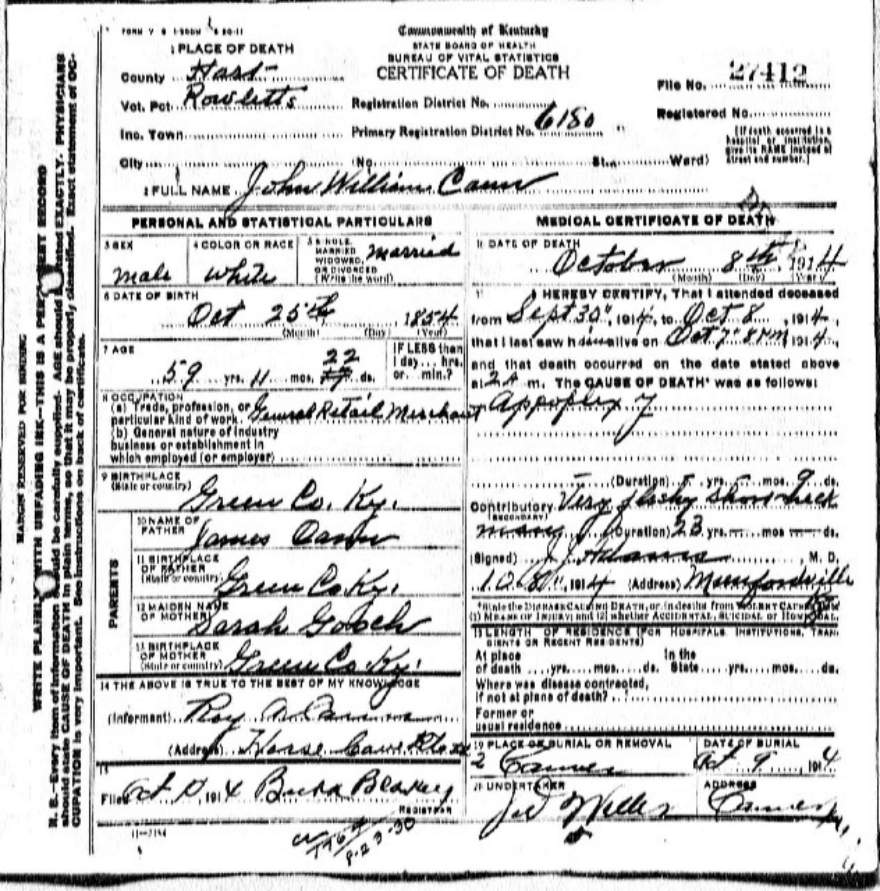 FORM V S
Commonwealth of Kentucky
STATE BOARD OF HEALTH
BUREAU OF VITAL STATISTICS
CERTIFICATE OF DEATH
1 PLACE OF DEATH
County Hart
Vot. Pct. Rowletts
Inc. Town
City No. St. Ward)
Registration District No.
Primary Registration District No. 6180
File No. 27412
Registered No.
[If death occurred in a
hospital or institution,
give its NAME instead of
street and number.]
2 FULL NAME John William Cann
PERSONAL AND STATISTICAL PARTICULARS
3 SEX
male
4 COLOR OR RACE
white
5 SINGLE,
MARRIED
WIDOWED,
OR DIVORCED
(Write the word)
married
6 DATE OF BIRTH
Oct 25th 1854
(Month) (Day) (Year)
7 AGE
59 yrs. 11 mos. 22 ds.
IF LESS than
1 day... hrs.
or... min.?
8 OCCUPATION
(a) Trade, profession, or
particular kind of work General Retail Merchant
(b) General nature of industry
business or establishment in
which employed (or employer)
9 BIRTHPLACE
(State or country) Green Co. Ky.
PARENTS
10 NAME OF
FATHER James Cann
11 BIRTHPLACE
OF FATHER
(State or country) Green Co Ky.
12 MAIDEN NAME
OF MOTHER Sarah Gooch
13 BIRTHPLACE
OF MOTHER
(State or country) Green Co Ky.
14 THE ABOVE IS TRUE TO THE BEST OF MY KNOWLEDGE
(Informant) Roy
(Address) Horse Cave
15
Filed Oct 1914
REGISTRAR
11-2184
MEDICAL CERTIFICATE OF DEATH
16 DATE OF DEATH
October 8th 1914
(Month) (Day) (Year)
17 I HEREBY CERTIFY, That I attended deceased
from Sept 30", 1914, to Oct 8, 1914,
that I last saw him alive on Oct 7" 1914,
and that death occurred on the date stated above
at 2 A m. The CAUSE OF DEATH* was as follows:
Appoplexy
(Duration) yrs. mos. 9 ds.
Contributory Very fleshy short neck
(SECONDARY)
many (Duration) 23 yrs. mos ds.
(Signed) J. J. Adams M. D.
10 8", 1914 (Address) Munfordville
*State the DISEASE CAUSING DEATH, or, in deaths from VIOLENT CAUSES,
(1) MEANS OF INJURY; and (2) whether ACCIDENTAL, SUICIDAL or HOMICIDAL.
18 LENGTH OF RESIDENCE (FOR HOSPITALS, INSTITUTIONS, TRANSIENTS
OR RECENT RESIDENTS)
At place
of death yrs. mos. ds.
In the
State yrs. mos. ds.
Where was disease contracted,
if not at place of death?
Former or
usual residence
19 PLACE OF BURIAL OR REMOVAL
Canmer
DATE OF BURIAL
Oct 9, 1914
20 UNDERTAKER
ADDRESS
Canmer Ky.
MARGIN RESERVED FOR BINDING
WRITE PLAINLY WITH UNFADING INK—THIS IS A PERMANENT RECORD
N. B.—Every item of information should be carefully supplied. AGE should be stated EXACTLY. PHYSICIANS
should state CAUSE OF DEATH in plain terms, so that it may be properly classified. Exact statement of OC-
CUPATION is very important. See instructions on back of certificate.